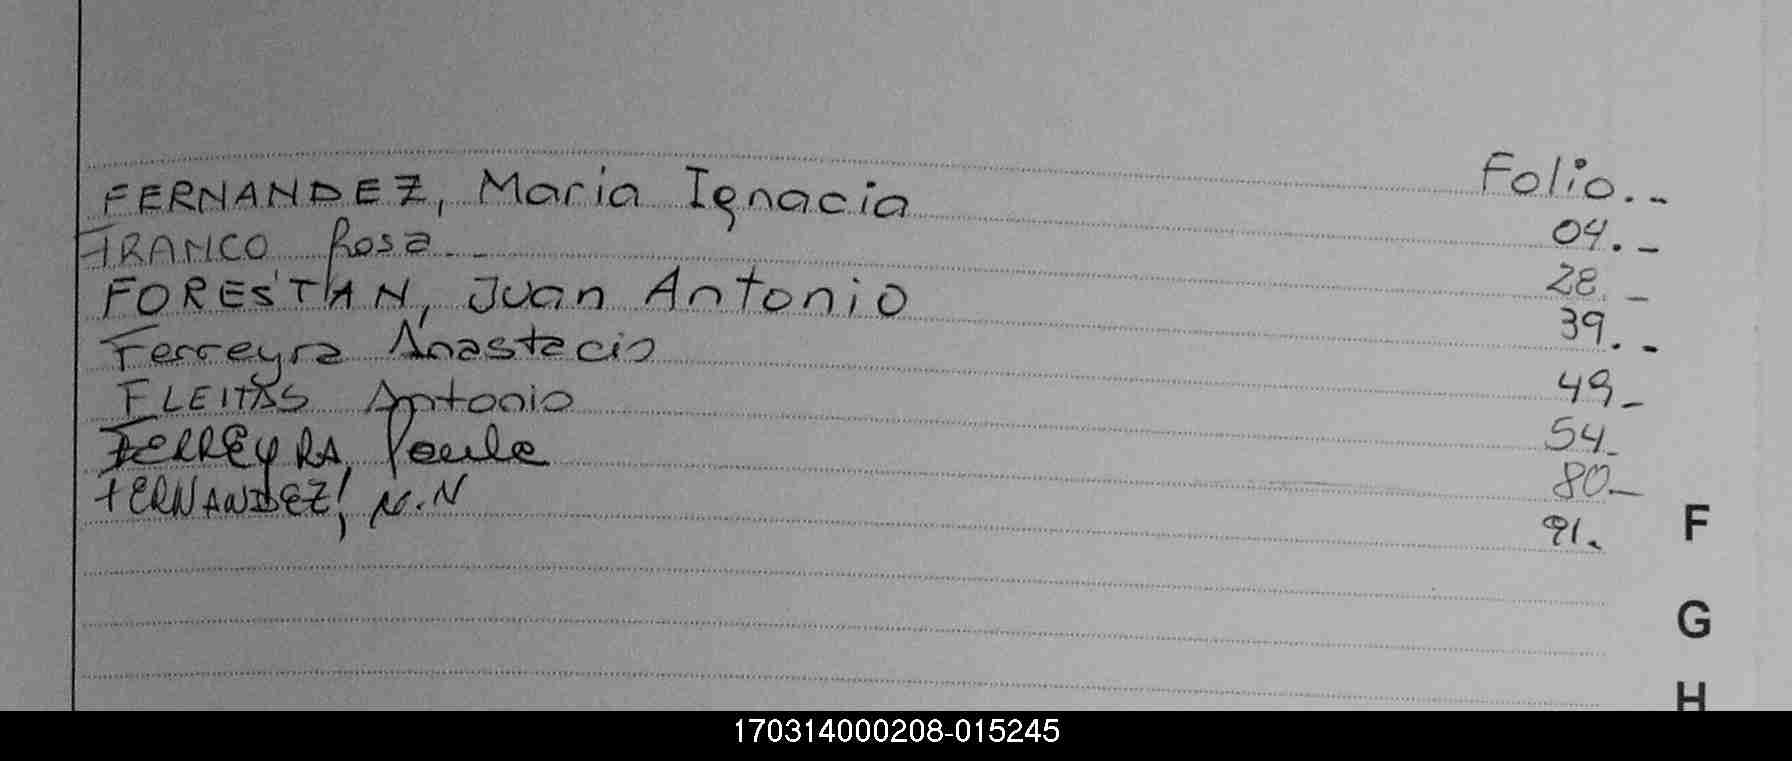 Folio..-
FERNANDEZ, Maria Ignacia 04.-
FRANCO Rosa.-- 28.-
FORESTIAN, Juan Antonio 39.-
Ferreyra Anastacio 49-
FLEITAS Antonio 54.
FERREYRA, Paula 80.-
FERNANDEZ, N.N 91.
F
G
H
170314000208-015245